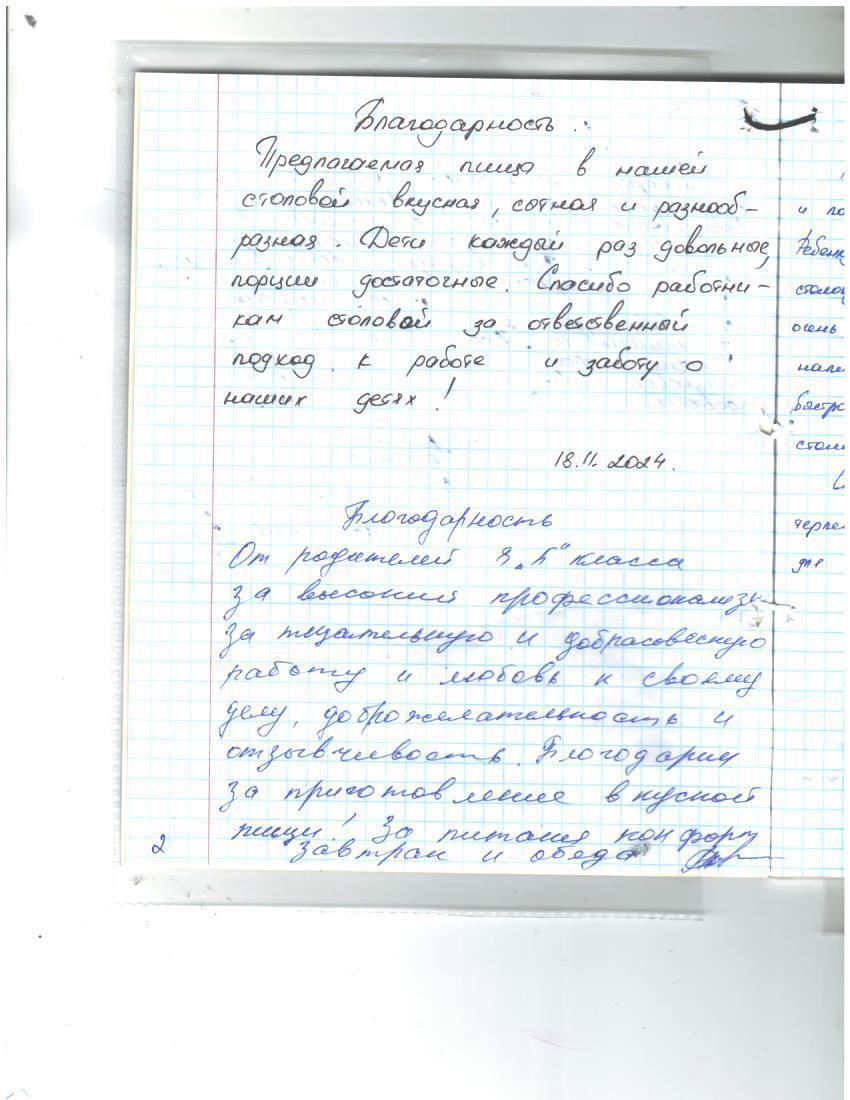 Благодарность.
Предлагаемая пища в нашей
столовой вкусная, сытная и разнооб-
разная. Дети каждый раз довольные,
порции достаточные. Спасибо работни-
кам столовой за ответственный
подход к работе и заботу о
наших детях!
18.11.2024.
Благодарность
От родителей "Б" класса
за высокий профессионализм
за тщательную и добрасовесную
работу и любовь к своему
делу, доброжелательность и
отзывчивость. Благодарим
за приготовление вкусной
пищи! За питания
завтрак и обеда
2
и по
Ребенк
столов
осень
нале
быстро
стол
терпе
для